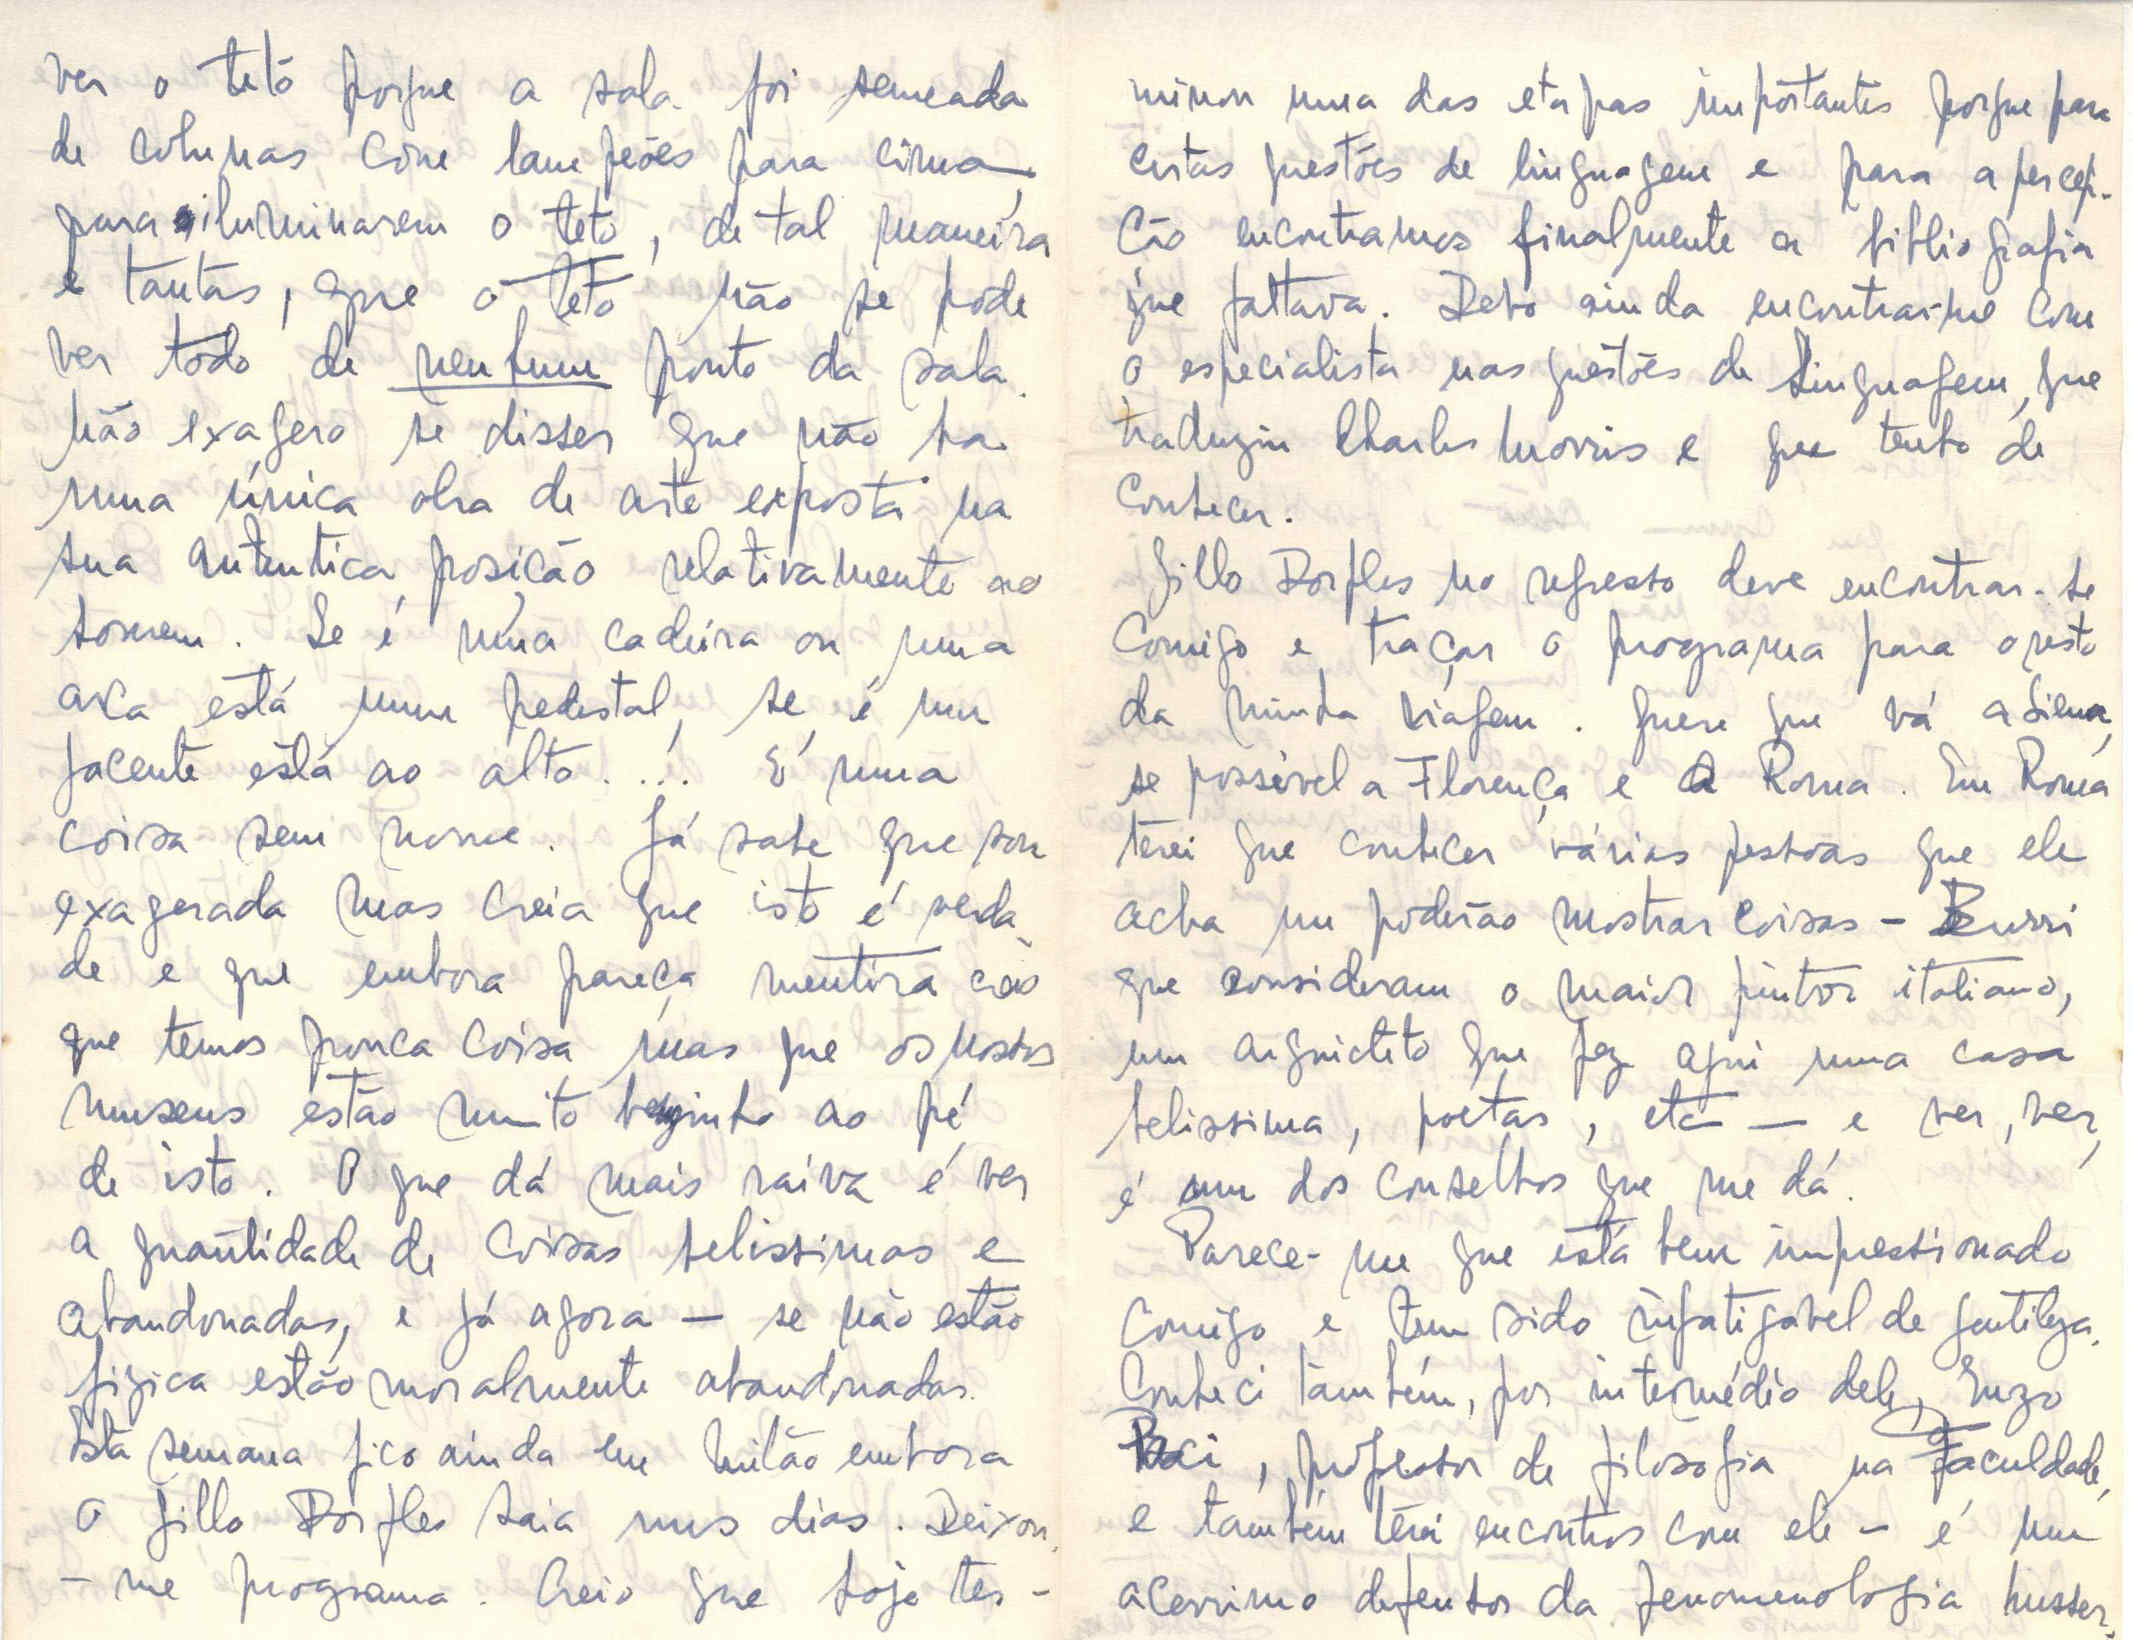 ver o teto porque a sala foi semeada
de colunas, com lampeões para cima,
para iluminarem o teto, de tal maneira
e tantas, que o teto não se pode
ver todo de nenhum ponto da sala.
Não exagero se disser que não ha
uma única obra de arte exposta na
sua autentica posição relativamente ao
homem. Se é uma cadeira ou uma
arca está num pedestal, se é um
jacente está ao alto... É uma
coisa sem nome. Já sabe que sou
exagerada mas creia que isto é verda
de e que embora pareça mentira creio
que temos pouca coisa mas que os nossos
museus estão muito bemzinho ao pé
de isto. O que dá mais raiva é ver
a quantidade de coisas belissimas e
abandonadas, e já agora — se não estão
fizica estão moralmente abandonadas.
Esta semana fico ainda em Milão embora
o Gillo Dorfles saia uns dias. Deixou
-me programa. Creio que hoje ter-
minou uma das etapas importantes porque para
certas questões de linguagem e para a percep-
ção encontramos finalmente a bibliografia
que faltava. Devo ainda encontrar-me com
o especialista nas questões de Linguagem, que
traduziu Charles Morris e que tenho de
conhecer.
Gillo Dorfles no regresso deve encontrar-se
comigo e traçar o programa para o resto
da minha viagem. Quere que vá a Siena,
se possivel a Florença e a Roma. Em Roma
terei que conhecer várias pessoas que ele
acha me poderão mostrar coisas - Burri
que consideram o maior pintor italiano,
um arquicteto que fez aqui uma casa
belissima, poetas, etc — e ver, ver,
é um dos conselhos que me dá.
Parece-me que está bem impressionado
comigo e tem sido infatigavel de gentileza.
Conheci também, por intermédio dele, Enzo
Paci, professor de filosofia na Faculdade,
e também terei encontros com ele - é um
acerrimo defensor da fenomenologia husser-